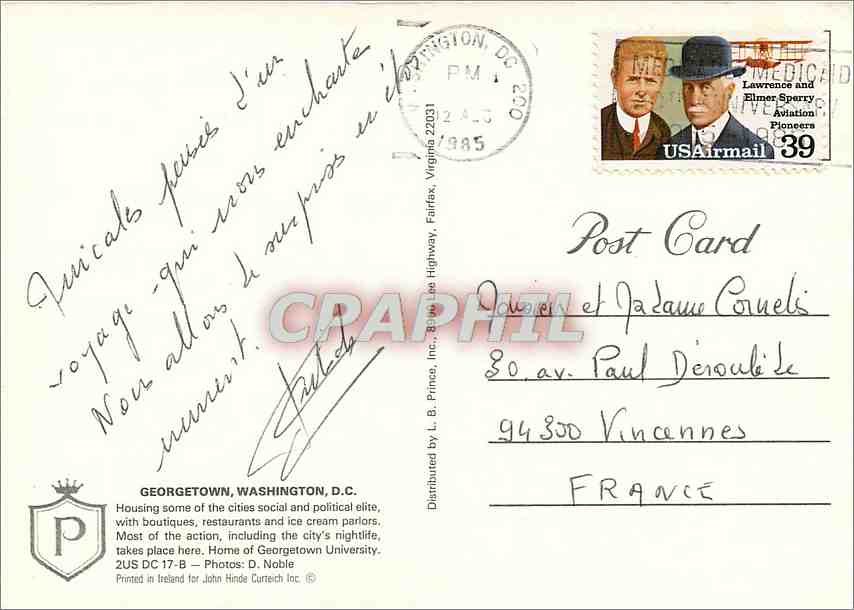 Amicales pensées d'un
voyage qui nous enchante
Nous allons de surprises en
WASHINGTON, DC 200
PM
1985
MEDICARE MEDICAID
ANNIVERSARY
Lawrence and
Elmer Sperry
Aviation
Pioneers
USAirmail 39
Post Card
CPAPHIL
et Madame Cornelis
30, av. Paul Déroulède
94300 Vincennes
FRANCE
Distributed by L. B. Prince, Inc., 8900 Lee Highway, Fairfax, Virginia 22031
P
GEORGETOWN, WASHINGTON, D.C.
Housing some of the cities social and political elite,
with boutiques, restaurants and ice cream parlors.
Most of the action, including the city's nightlife,
takes place here. Home of Georgetown University.
2US DC 17-B — Photos: D. Noble
Printed in Ireland for John Hinde Curteich Inc. ©